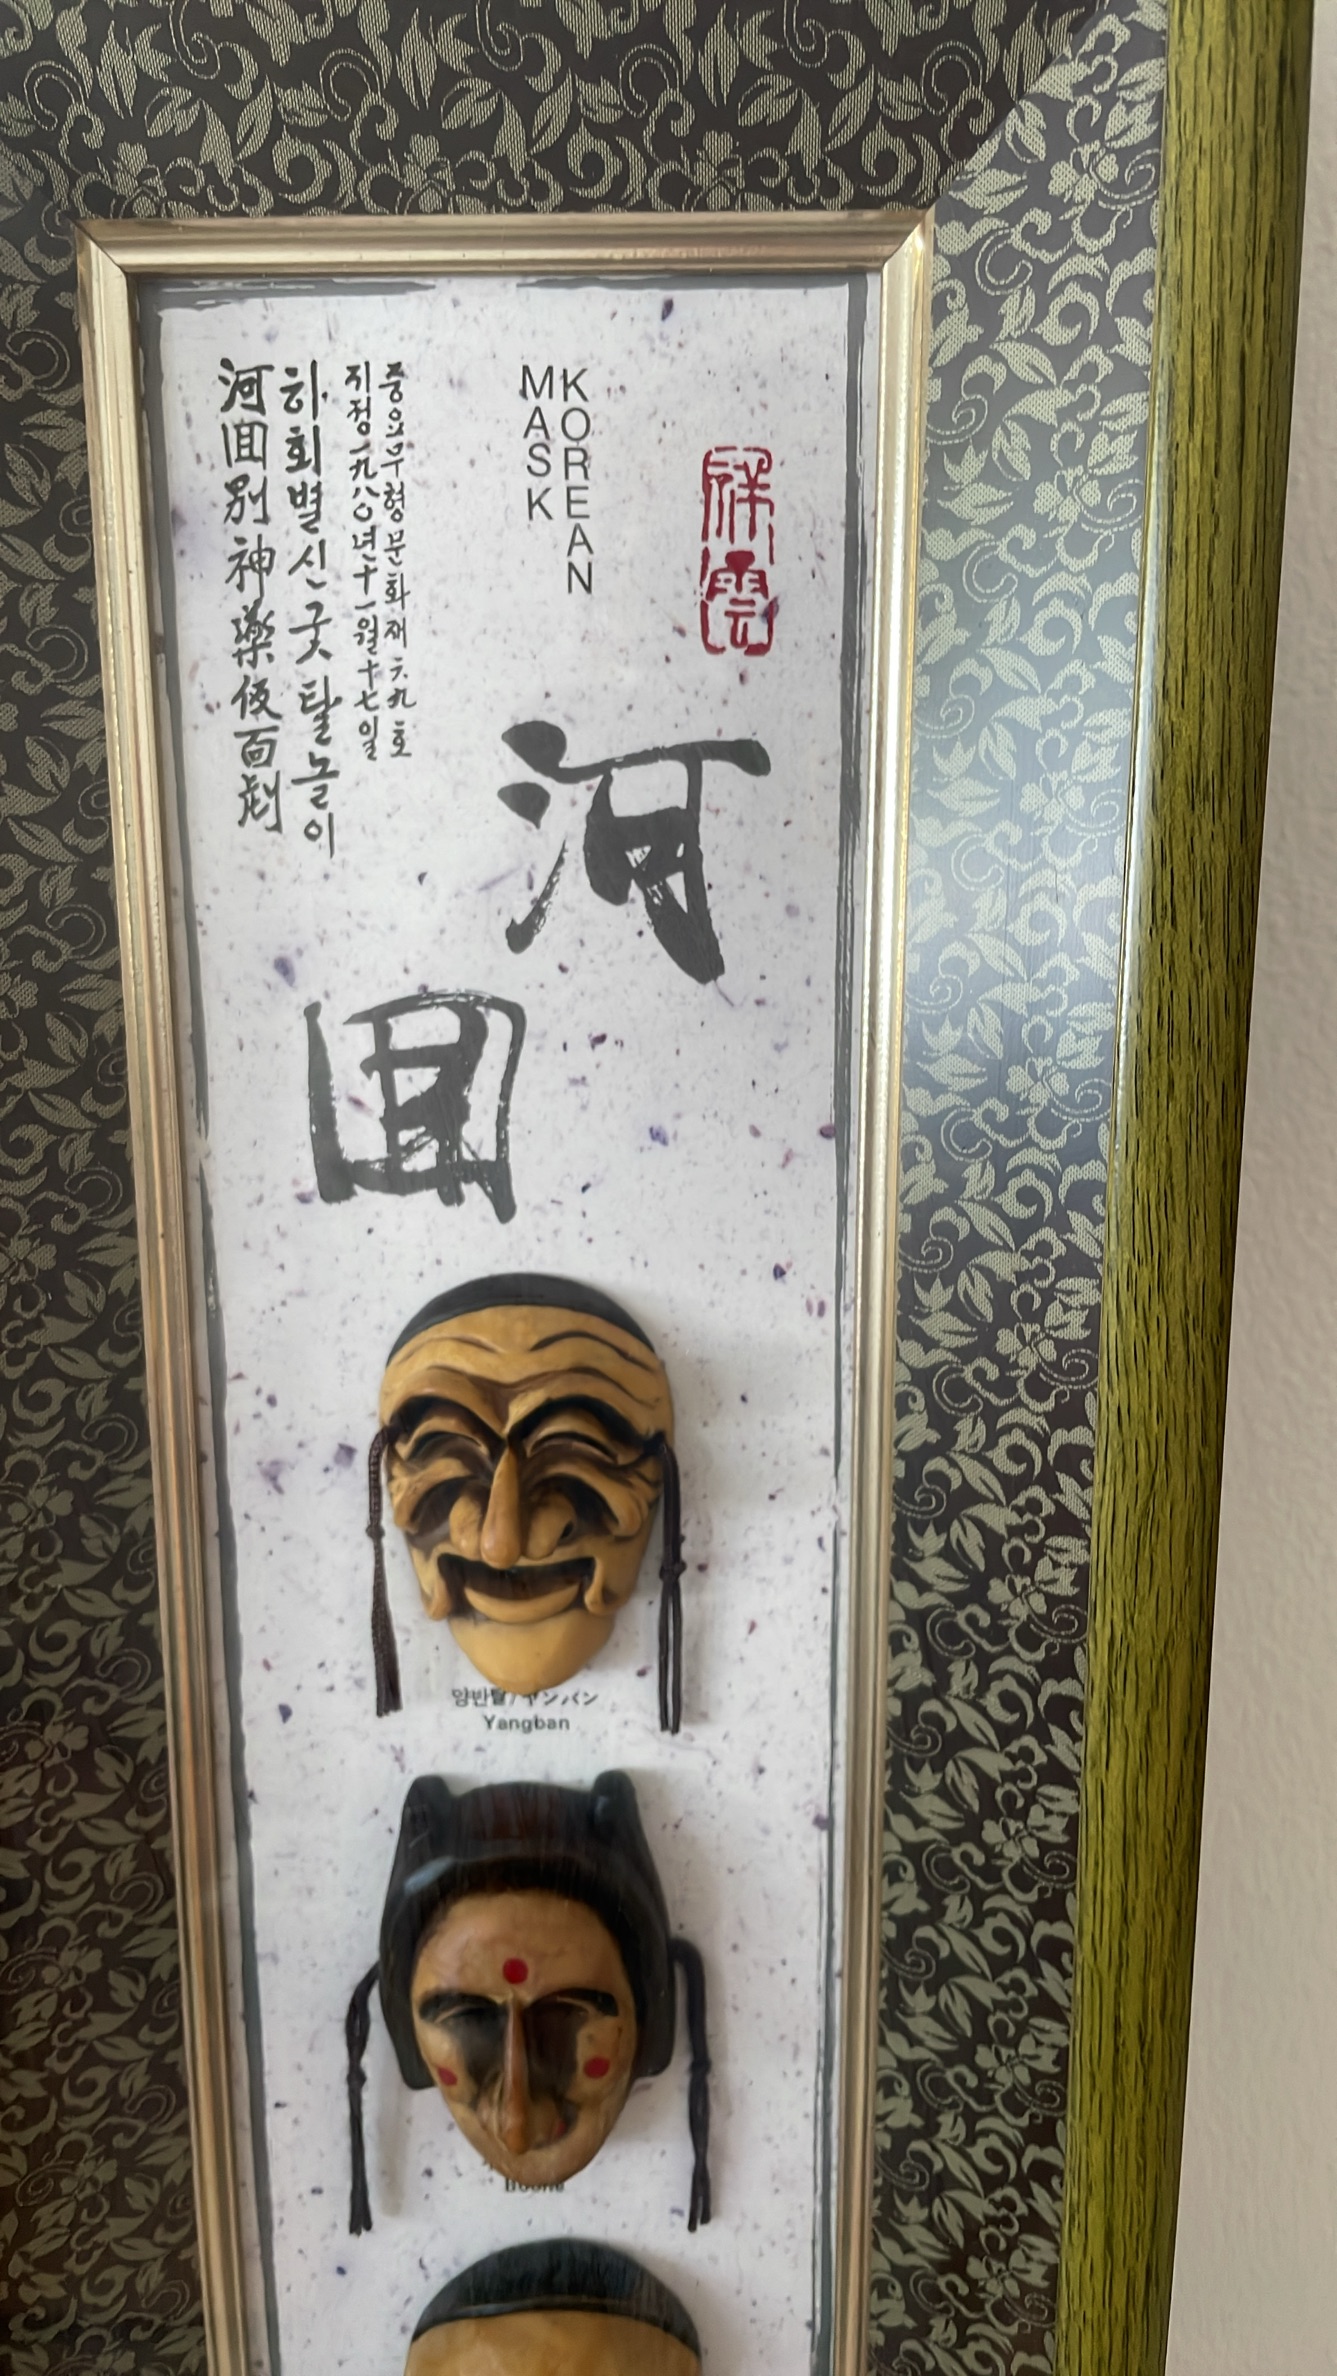 祥雲
KOREAN
MASK
河回
중요무형문화재六九호
지정一九八〇년十一월十七일
하회별신굿탈놀이
河回別神樂仮面劇
양반탈/ヤンバン
Yangban